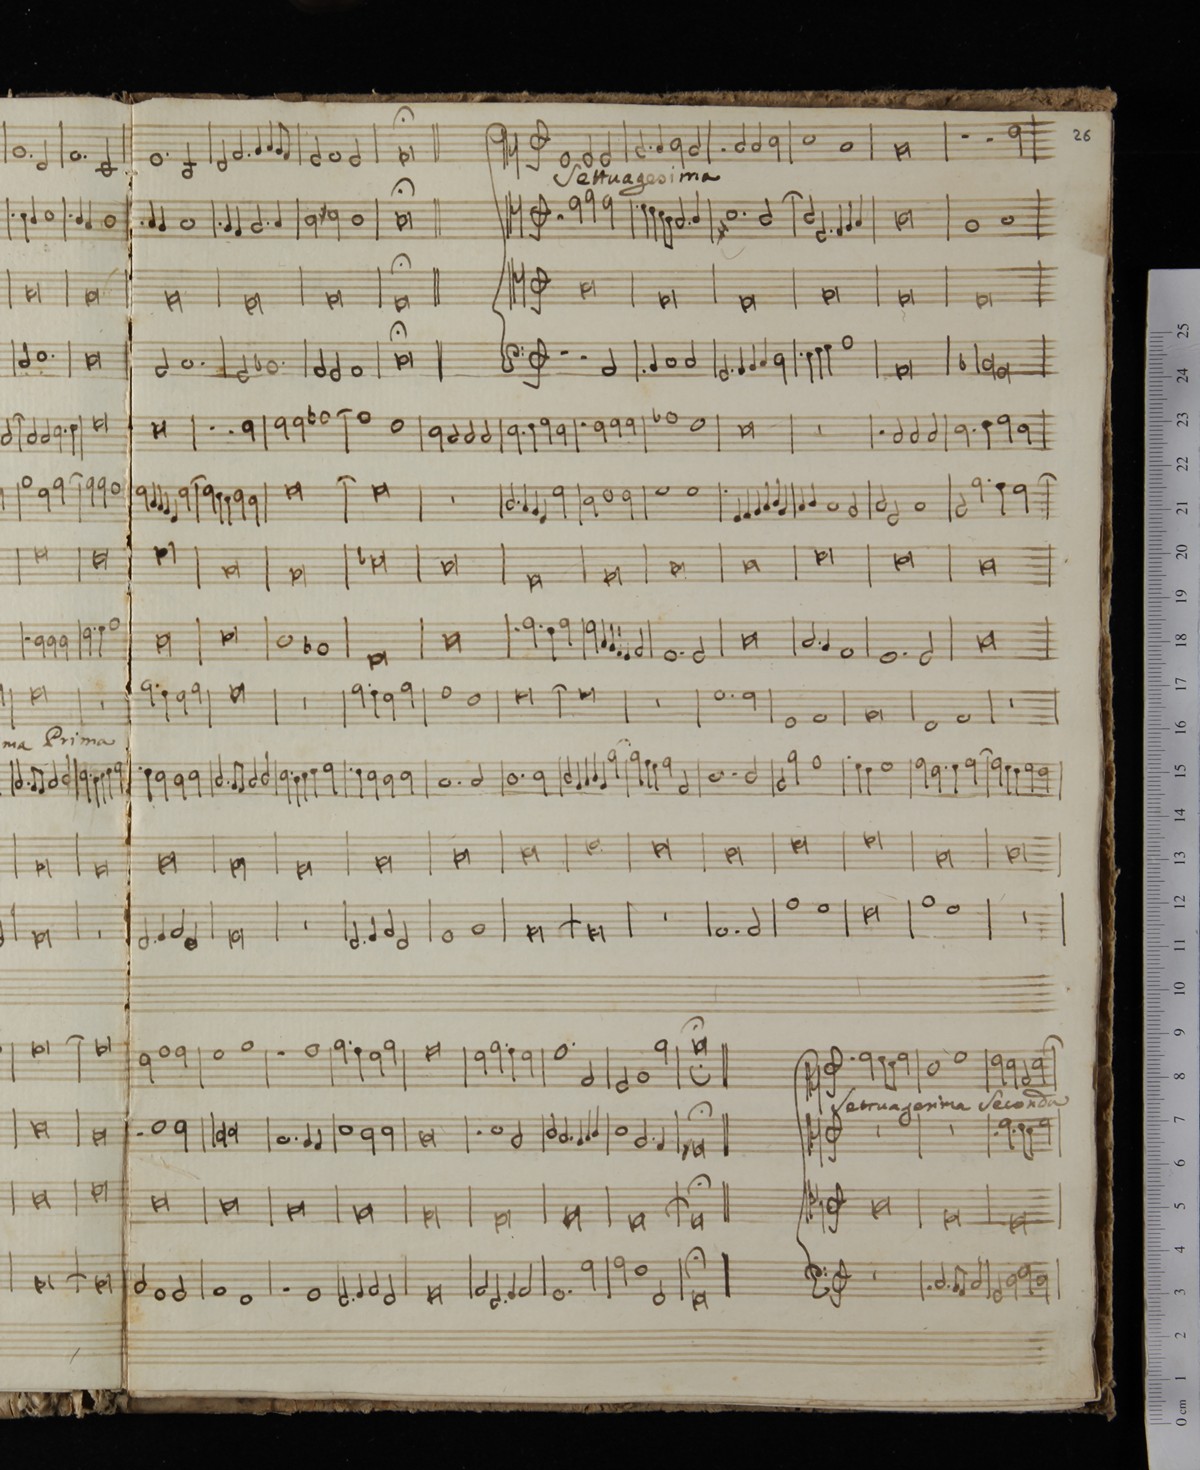 26
Settuagesima
ma Prima
Settuagesima Seconda
25
24
23
22
21
20
19
18
17
16
15
14
13
12
11
10
9
8
7
6
5
4
3
2
1
0 cm